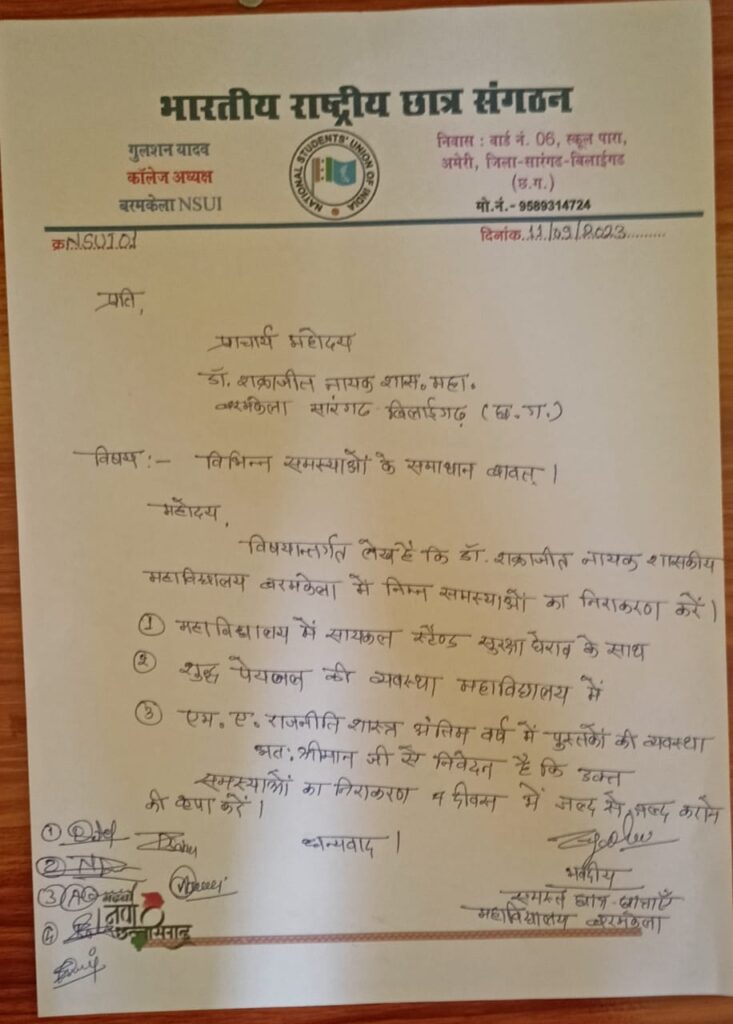 भारतीय राष्ट्रीय छात्र संगठन
गुलशन यादव
कॉलेज अध्यक्ष
बरमकेला NSUI
NATIONAL STUDENTS' UNION OF INDIA
निवास : वार्ड नं. 06, स्कूल पारा,
अमेरी, जिला-सारंगढ-बिलाईगढ
(छ.ग.)
मो.नं.- 9589314724
क्र NSUI 01
दिनांक 11/09/2023
प्रति,
प्राचार्य महोदय
डॉ. शक्राजीत नायक शास. महा.
बरमकेला सारंगढ बिलाईगढ़ (छ.ग.)
विषय :- विभिन्न समस्याओं के समाधान बावत् ।
महोदय,
विषयान्तर्गत लेख है कि डॉ. शक्राजीत नायक शासकीय
महाविद्यालय बरमकेला में निम्न समस्याओं का निराकरण करें।
① महाविद्यालय में सायकल स्टैण्ड सुरक्षा घेराव के साथ
② शुद्ध पेयजल की व्यवस्था महाविद्यालय में
③ एम. ए. राजनीति शास्त्र अंतिम वर्ष में पुस्तकों की व्यवस्था
अतः श्रीमान जी से निवेदन है कि उक्त
समस्याओं का निराकरण 7 दिवस में जल्द से जल्द कराने
की कृपा करें।
धन्यवाद ।
①
②
③
④
गढ़बो
नवा
छत्तीसगढ़
भवदीय
समस्त छात्र-छात्राएँ
महाविद्यालय बरमकेला